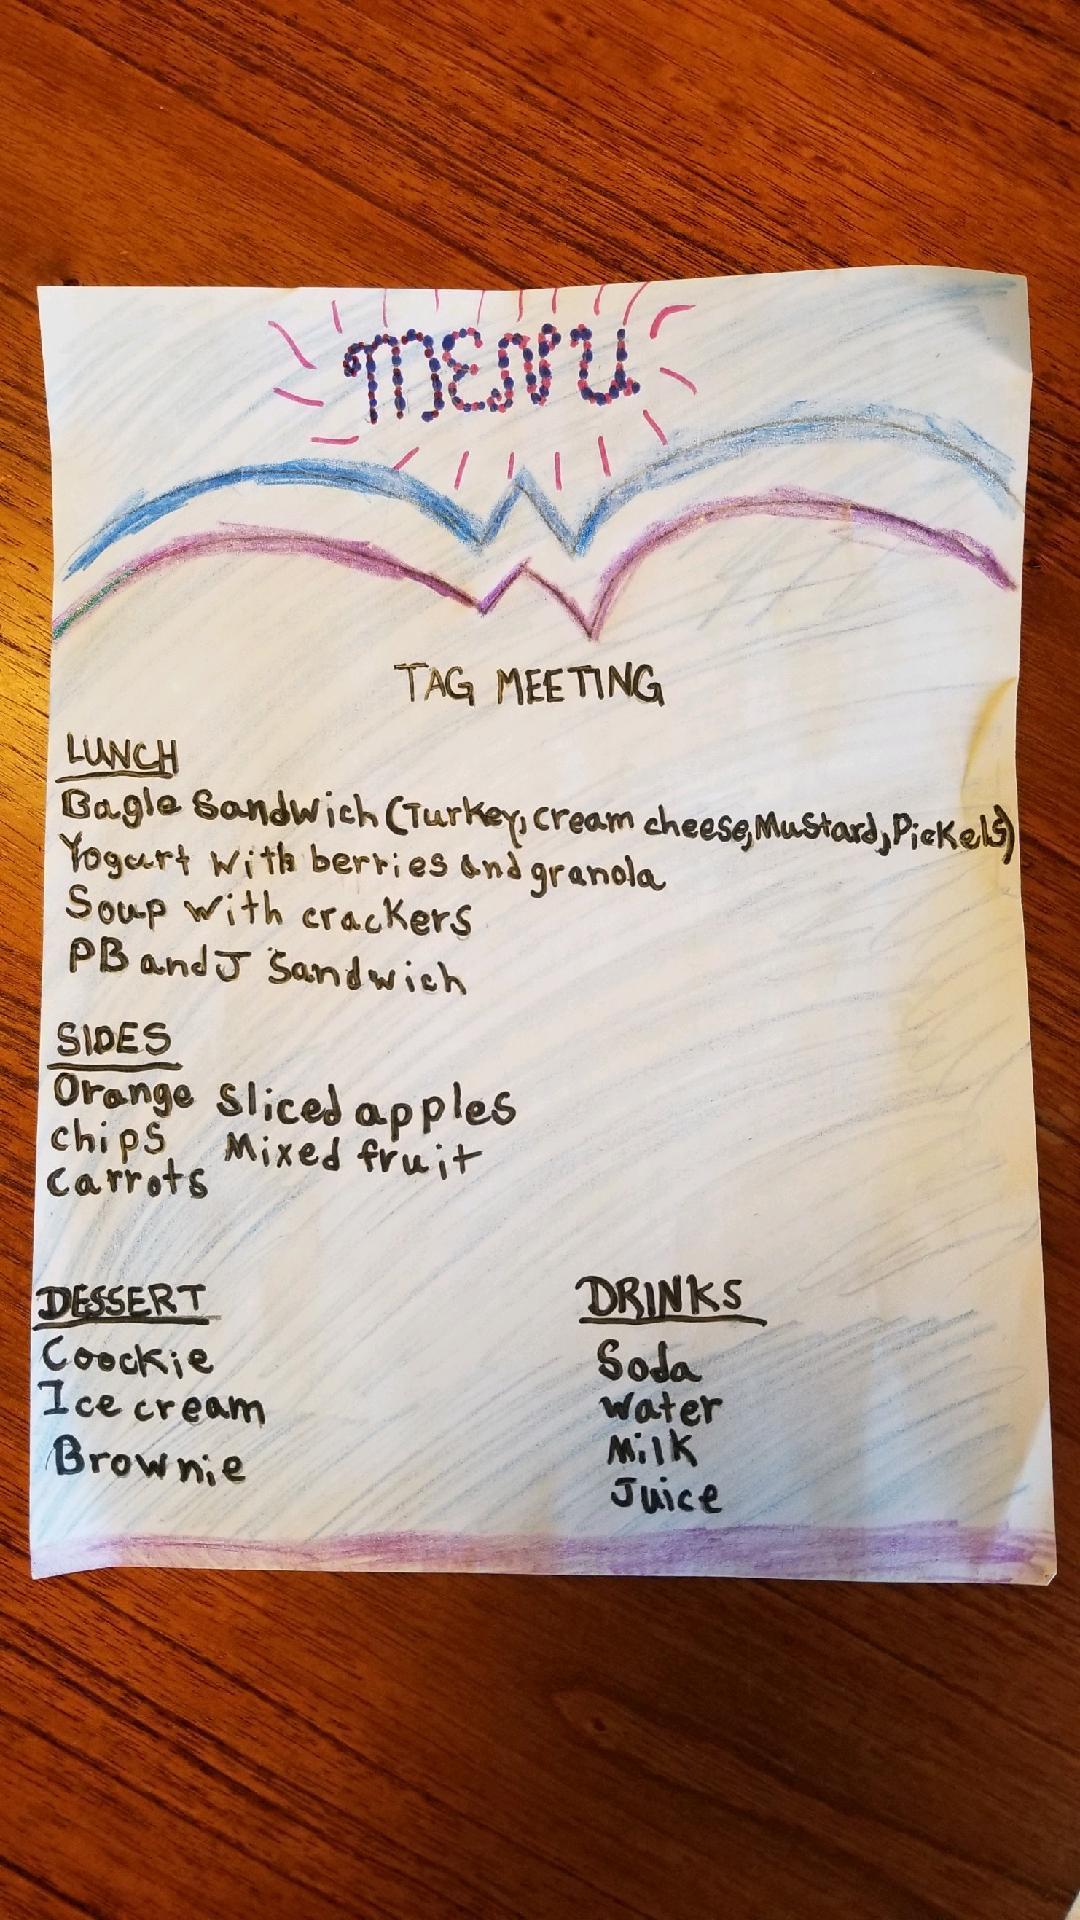 MENU
TAG MEETING
LUNCH
Bagle Sandwich (Turkey, cream cheese, Mustard, Pickels)
Yogurt with berries and granola
Soup with crackers
PB and J Sandwich
SIDES
Orange Sliced apples
chips Mixed fruit
carrots
DESSERT
Coockie
Ice cream
Brownie
DRINKS
Soda
water
Milk
Juice